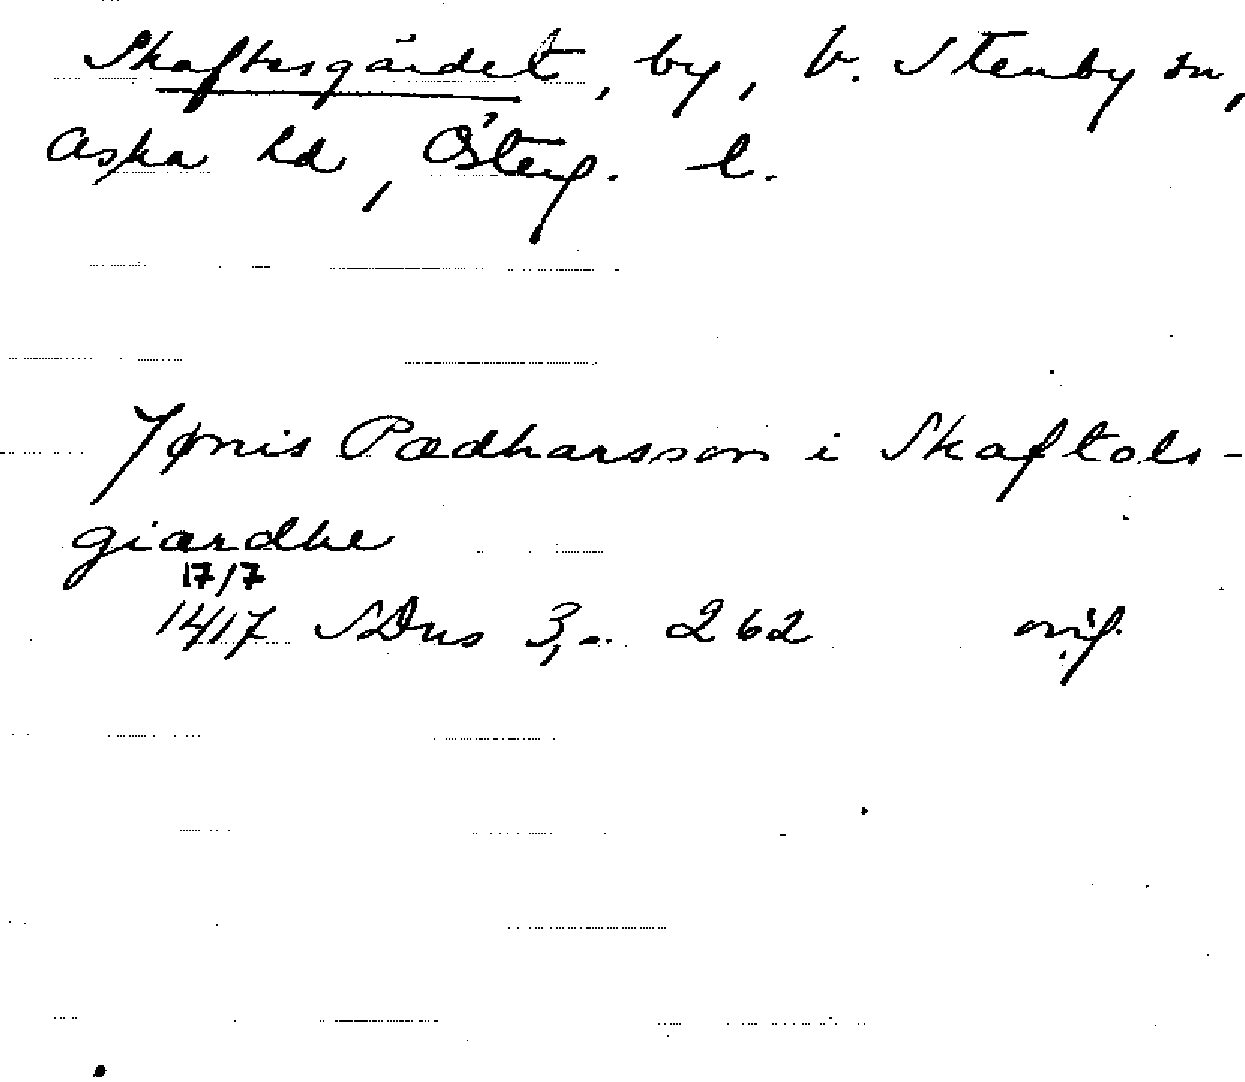 Skaftesgärdet, by, V. Stenby sn,
Aska hd, Österg. l.
Jønis Pædharsson i Skaftols-
giærdhe
17/7
1417 SDns 3, s. 262 orig.